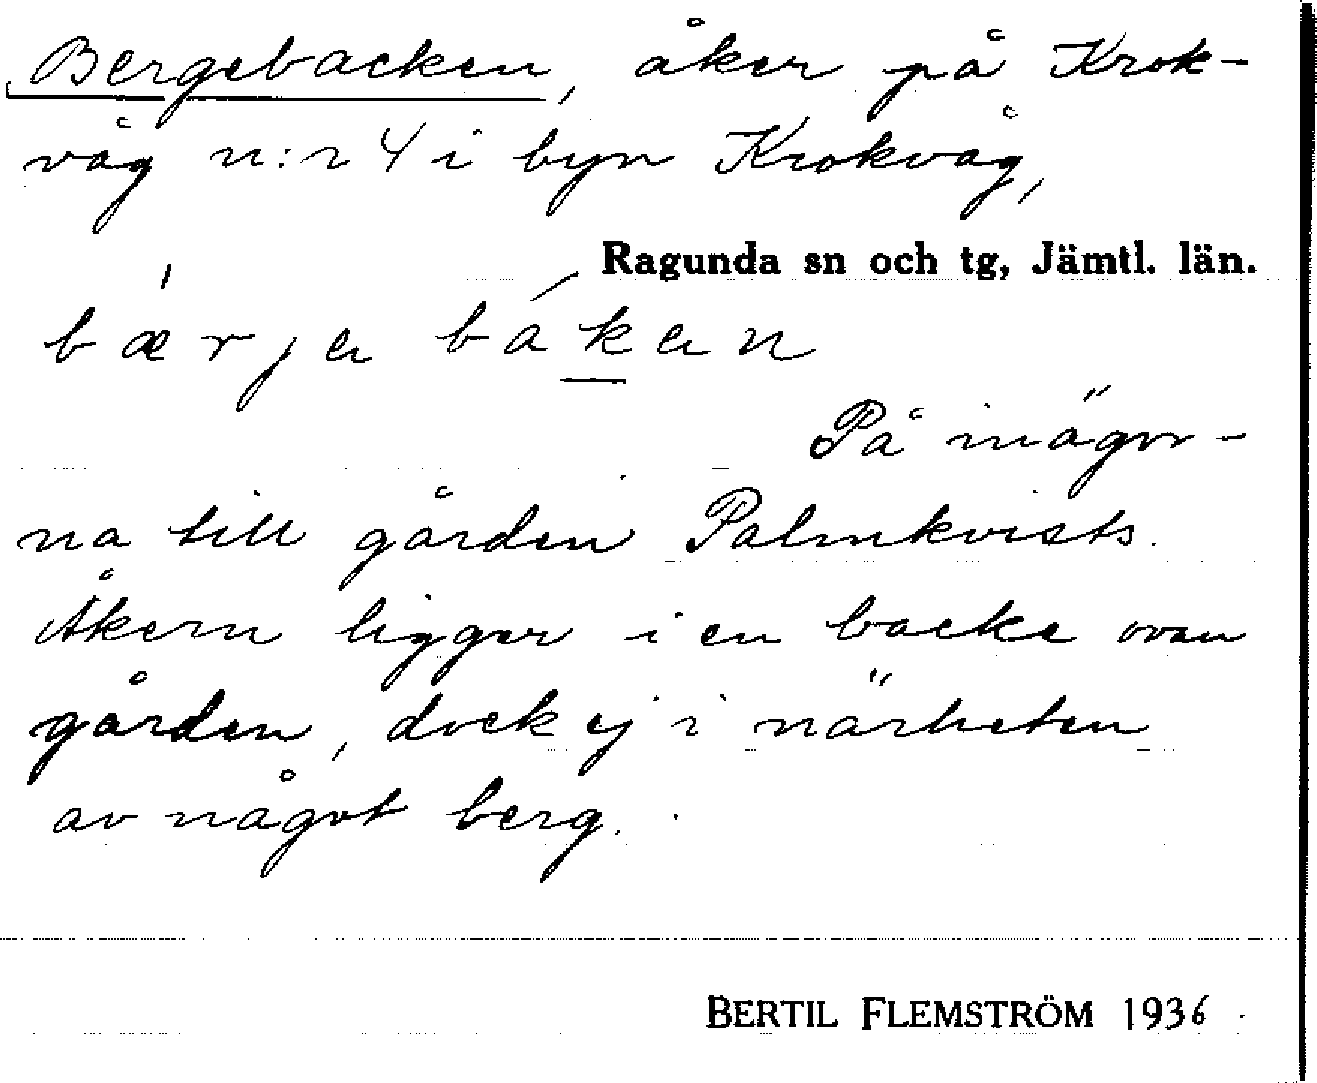 Bergebacken, åker på Krok-
våg n:r 4 i byn Krokvåg,
Ragunda sn och tg, Jämtl. län.
bærja bakan
På inägor-
na till gården Palmkvists.
Åkern ligger i en backe ovan
gården, dock ej i närheten
av något berg.
BERTIL FLEMSTRÖM 1936